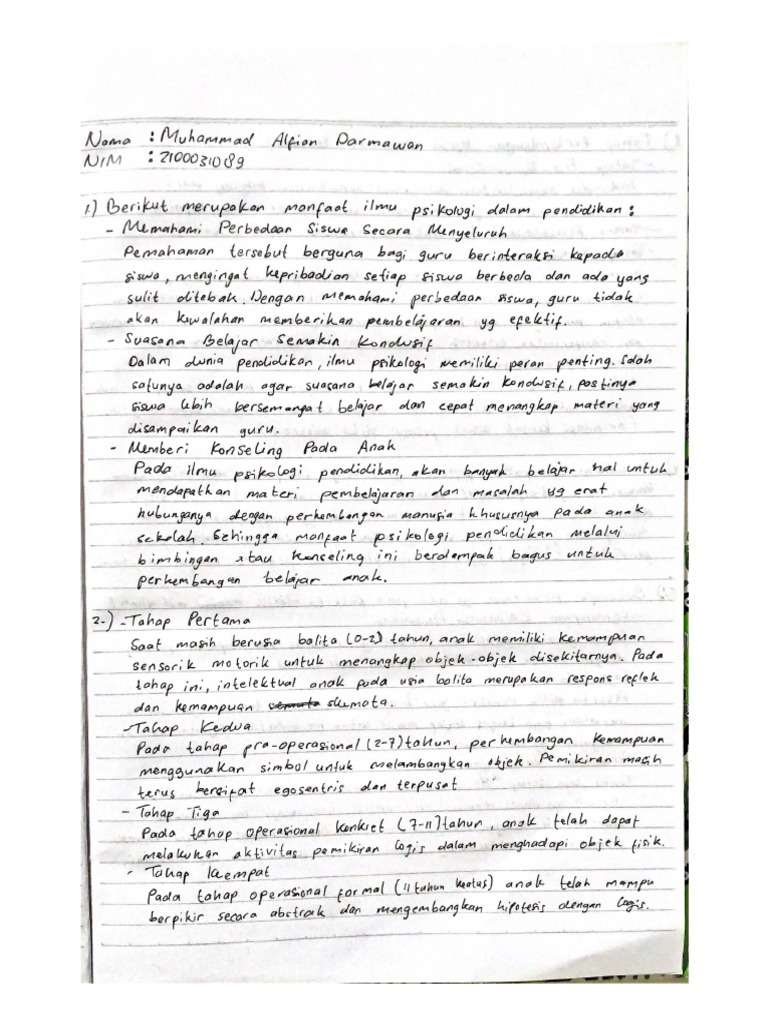 Nama : Muhammad Alfian Darmawan
NIM : 2100031089
1.) Berikut merupakan manfaat ilmu psikologi dalam pendidikan :
- Memahami Perbedaan Siswa Secara Menyeluruh
Pemahaman tersebut berguna bagi guru berinteraksi kepada
siswa, mengingat kepribadian setiap siswa berbeda dan ada yang
sulit ditebak. Dengan memahami perbedaan siswa, guru tidak
akan kewalahan memberikan pembelajaran yg efektif.
- Suasana Belajar Semakin Kondusif
Dalam dunia pendidikan, ilmu psikologi memiliki peran penting. Salah
satunya adalah agar suasana belajar semakin kondusif, pastinya
siswa lebih bersemangat belajar dan cepat menangkap materi yang
disampaikan guru.
- Memberi Konseling Pada Anak
Pada ilmu psikologi pendidikan, akan banyak belajar hal untuk
mendapatkan materi pembelajaran dan masalah yg erat
hubunganya dengan perkembangan manusia khususnya pada anak
sekolah. Sehingga manfaat psikologi pendidikan melalui
bimbingan atau konseling ini berdampak bagus untuk
perkembangan belajar anak.
2.) - Tahap Pertama
Saat masih berusia balita (0-2) tahun, anak memiliki kemampuan
sensorik motorik untuk menangkap objek-objek disekitarnya. Pada
tahap ini, intelektual anak pada usia balita merupakan respons reflek
dan kemampuan skemata.
- Tahap Kedua
Pada tahap pra-operasional (2-7) tahun, perkembangan kemampuan
menggunakan simbol untuk melambangkan objek. Pemikiran masih
terus bersifat egosentris dan terpusat
- Tahap Tiga
Pada tahap operasional konkret (7-11) tahun, anak telah dapat
melakukan aktivitas pemikiran logis dalam menghadapi objek fisik.
- Tahap Keempat
Pada tahap operasional formal (11 tahun keatas) anak telah mampu
berpikir secara abstrak dan mengembangkan hipotesis dengan logis.